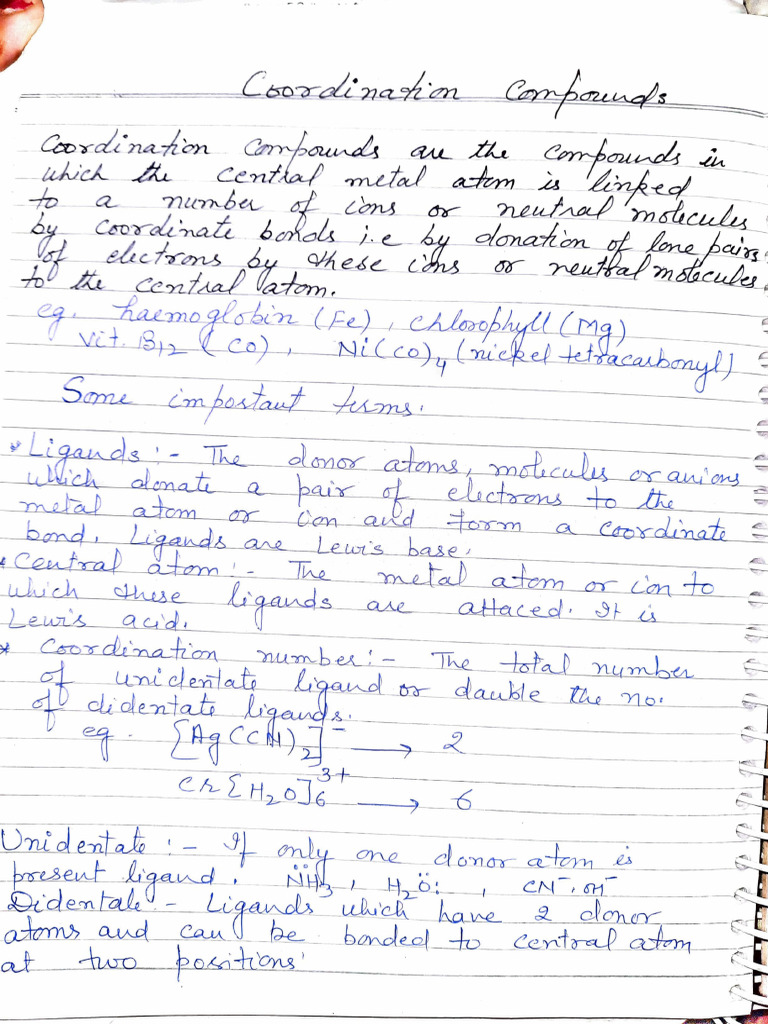 Coordination Compounds
Coordination Compounds are the compounds in
which the central metal atom is linked
to a number of ions or neutral molecules
by coordinate bonds i.e by donation of lone pairs
of electrons by these ions or neutral molecules
to the central atom.
eg. haemoglobin (Fe), chlorophyll (Mg)
vit. B12 (CO), Ni(CO)4 (nickel tetracarbonyl)
Some important terms.
* Ligands :- The donor atoms, molecules or anions
which donate a pair of electrons to the
metal atom or ion and form a coordinate
bond. Ligands are Lewis base.
* Central atom :- The metal atom or ion to
which these ligands are attaced. It is
Lewis acid.
* Coordination number :- The total number
of unidentate ligand or dauble the no.
of didentate ligands.
eg. [Ag(CN)2]⁻ → 2
Cr[H2O]6³⁺ → 6
Unidentate :- If only one donor atom is
present ligand. N̈H3, H2Ö:, CN⁻, OH⁻
Didentale - Ligands which have 2 donor
atoms and can be bonded to central atom
at two positions